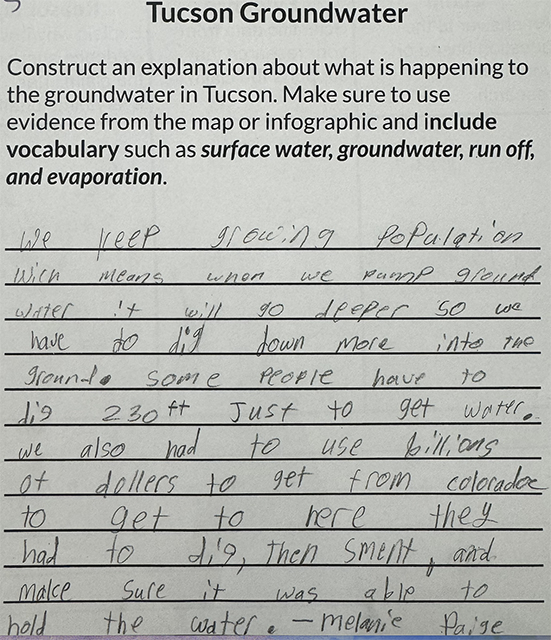 Tucson Groundwater
Construct an explanation about what is happening to
the groundwater in Tucson. Make sure to use
evidence from the map or infographic and include
vocabulary such as surface water, groundwater, run off,
and evaporation.
We keep growing population
wich means when we pump ground
water it will go deeper so we
have to dig down more into the
ground. some people have to
dig 230 ft Just to get water.
we also had to use billions
of dollers to get from coloradoe
to get to here they
had to dig, then sment, and
make sure it was able to
hold the water. – melanie Paige